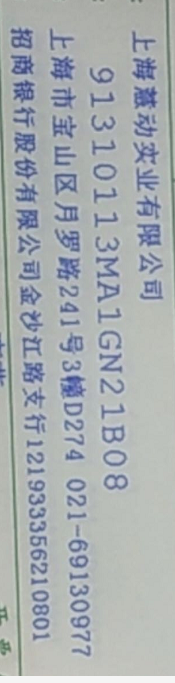 上海薏动实业有限公司
91310113MA1GN21B08
上海市宝山区月罗路241号3幢D274 021-69130977
招商银行股份有限公司金沙江路支行121933356210801